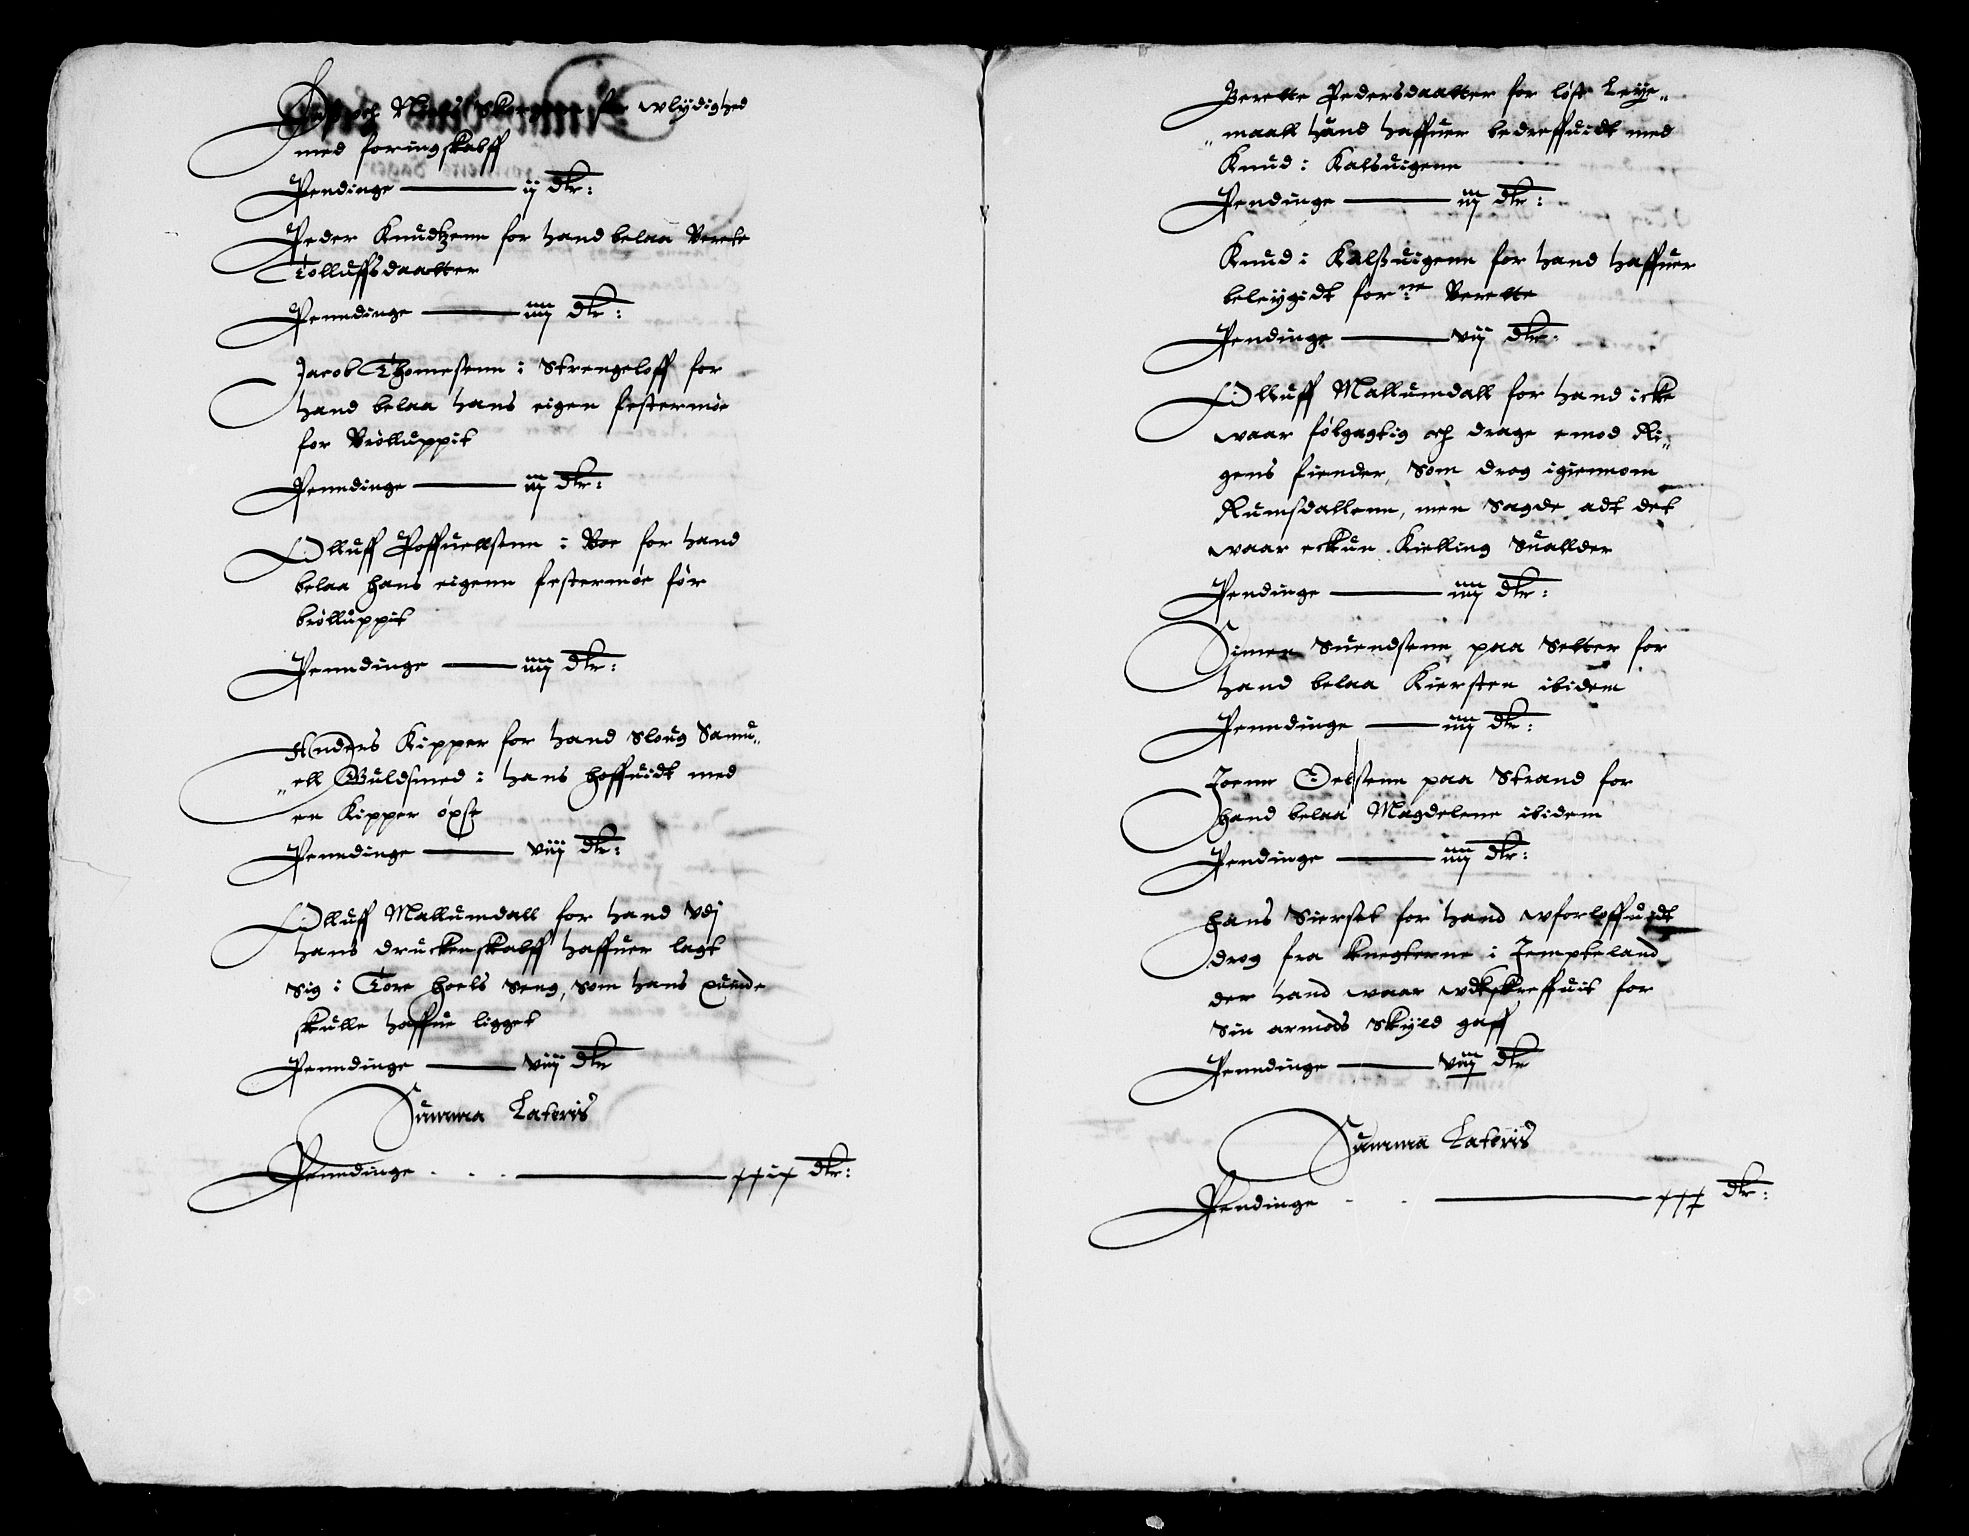 och Niels Skougen for wlydighed
med foringskabff
Pendinge ij dlr:
Peder Knudtzenn for hand belaa Berete
Tolluffsdaatter
Penndinge iiij dlr:
Jacob Thomesenn i Strengeloff for
hand belaa hans eigen festermøe
for Brølluppit
Penndinge iij dlr:
Olluff Poffuellsenn i Boe for hand
belaa hans eigenn festermøe før
brølluppit
Penndinge iiij dlr:
Anders Kipper for hand sloug Samu„
„ell Guldsmed i hans hoffuidt med
en Kipper øpse
Penndinge viij dlr:
Olluff Mallumdall for hand vdj
hans druckenskabff haffuer lagt
sig i Tore hoels seng, som hans quinde
skulle haffue ligget
Penndinge viij dlr
Summa Lateris
Penndinge xxix dlr:
Berette Pedersdaatter for løst Leye„
„maall hand haffuer bedreffuidt med
Knud i Kalsuigenn
Pendinge iij dlr:
Knud i Kalsuigenn for hand haffuer
beleygidt forne Berette
Pendinge vij dlr:
Olluff Mallumdall for hand icke
waar følgagtig och drage emod Ri„
gens fiender, som drog igiennom
Rumsdallenn, men sagde adt det
waar eckun Kielling Suallder
Pendinge iiij dlr:
Simen Suendsenn paa Setter for
hand belaa Kiersten ibidem
Penndinge iiij dlr:
Joenn Oelsenn paa Strand for
hand belaa Magdelene ibidem
Pendinge iiij dlr:
Hans Sierset for hand wforloffuidt
drog fra knegterne i Jempteland
der hand waar wdtskreffuit for
sin armods skyld gaff
Penndinge viij dlr
Summa Lateris
Pendinge xxx dlr: